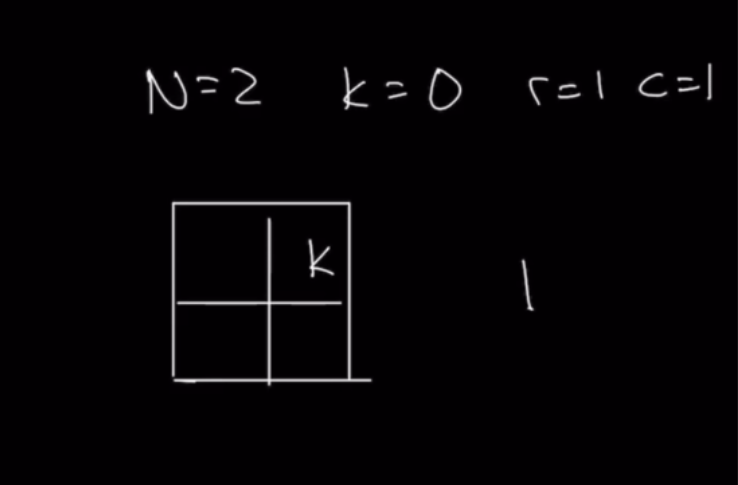 N=2 k=0 r=1 c=1
k
1